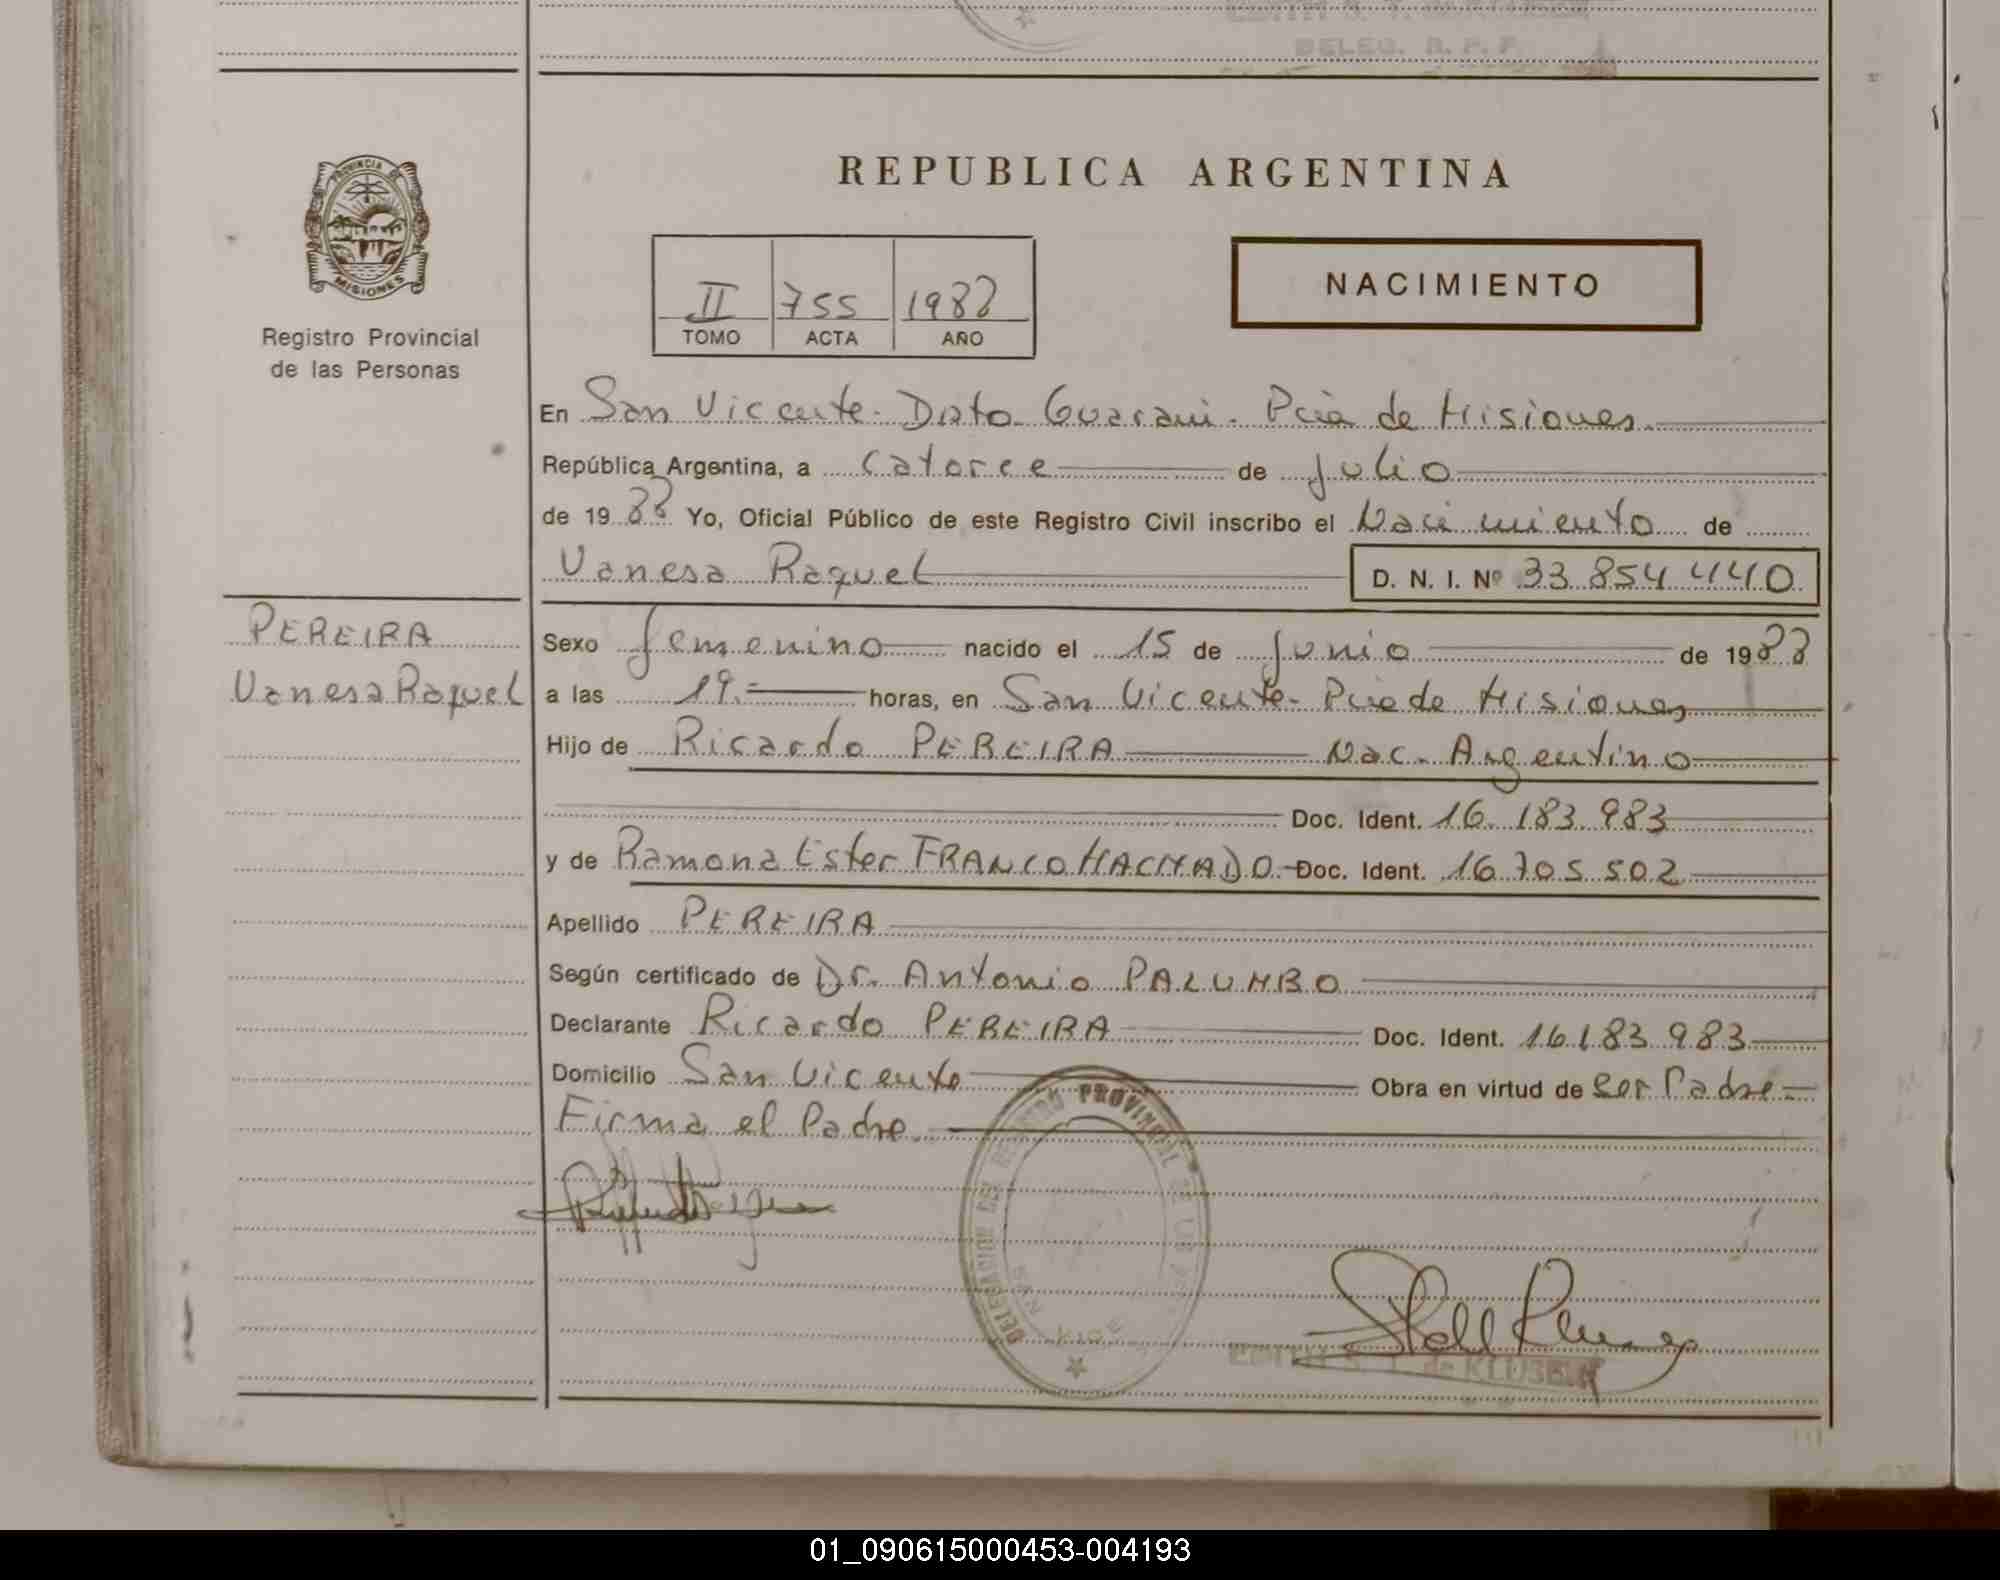 DELEG. R. P. P.
PROVINCIA DE
MISIONES
Registro Provincial
de las Personas
REPUBLICA ARGENTINA
NACIMIENTO
II 755 1988
TOMO ACTA AÑO
En San Vicente - Dpto Guarani - Pcia de Misiones
República Argentina, a Catorce de Julio
de 1988 Yo, Oficial Público de este Registro Civil inscribo el Nacimiento de
Vanesa Raquel D. N. I. Nº 33 854 440
PEREIRA
Vanesa Raquel
Sexo femenino nacido el 15 de Junio de 1988
a las 19.- horas, en San Vicente - Pcia de Misiones
Hijo de Ricardo PEREIRA Nac. Argentino
Doc. Ident. 16.183.983
y de Ramona Ester FRANCO MACHADO - Doc. Ident. 16 705 502
Apellido PEREIRA
Según certificado de Dr. Antonio PALUMBO
Declarante Ricardo PEREIRA Doc. Ident. 16183983
Domicilio San Vicente Obra en virtud de ser Padre -
Firma el Padre.
DELEGACION DEL REGISTRO PROVINCIAL DE LAS
SAN VICE
EDITH S. T. de KLUSENER
01_090615000453-004193